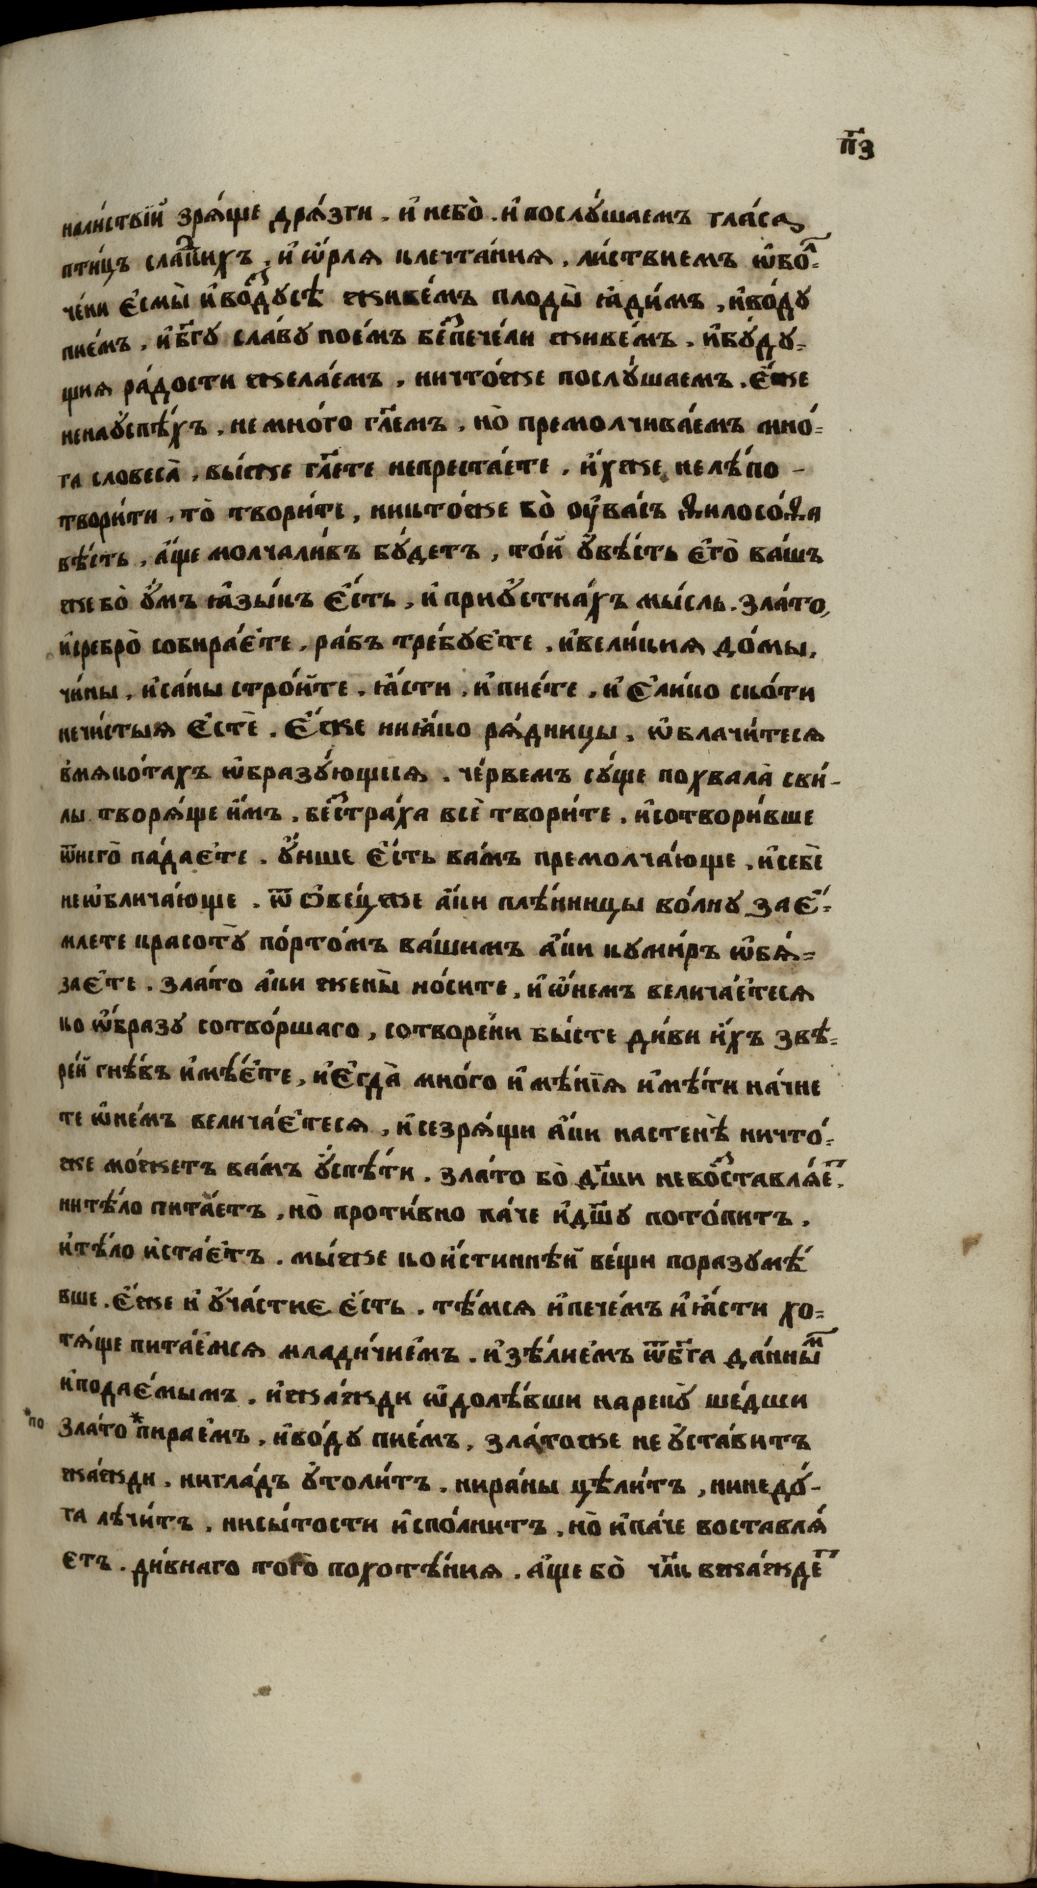 п҃з
налиствїй зрѧ́ще дрѧ́зги . и҆ небо̀ . и҆ послꙋ́шаемъ гла́са
птицъ сла́вныхъ , и҆ ѻ҆рлѧ клечта́ниѧ , ли́ствиемъ ѡ҆бол=
че́ни є҆смы̀ и҆ во́здꙋсѣ живе́мъ плоды̀ ꙗ҆ди́мъ , и҆во́дꙋ
пие́мъ , и҆б҃гꙋ сла́вꙋ пое́мъ беспече́ли живе́мъ . и҆бꙋ́дꙋ=
щиѧ ра́дости жела́емъ , ничто́же послꙋ́шаемъ . є҆́же
ненаꙋ҆спѣ́хъ , не мно́го гл҃емъ , но̀ премолчива́емъ мно́=
га словеса̀ , вы́же гл҃ете непреста́ете , и҆́хже нелѣ́по -
твори́ти , то̀ твори́те , никто́же бо̀ ѹ҆ва́съ ѳилосо́ѳа
вѣ́сть , а҆́ще молчали́въ бꙋ́детъ , то́й ꙋ҆вѣ́сть є҆го̀ ва́шъ
же бо̀ ꙋ҆́мъ ꙗ҆зы́къ є҆́сть , и҆ приꙋ҆стна́хъ мы́сль . зла́то ,
и҆сребро̀ собира́єте , ра́бъ тре́бꙋєте , и҆вели́киѧ до́мы ,
чи́ны , и҆са́ны стро́йте , ꙗ҆́сти , и҆ пие́те , и҆ є҆ли́ко ско́ти
нечи́стыѧ є҆стѐ . є҆́же ни ꙗ҆́ко рѧ́дницы , ѡ҆блачи́тесѧ
вмѧко́тахъ ѡ҆бразꙋ́ющисѧ . че́рвемъ сꙋ́ще похвала̀ сви-
лы творѧ́ще и҆́мъ , бестра́ха всѐ твори́те , и҆сотвори́вше
ѿнего̀ па́даєте . ꙋ҆́нше є҆́сть ва́мъ премолча́юще , и҆себѐ
неѡ҆блича́юще . ѿ ѻ҆ве́цже а҆́ки плѣ́нницы во́лнꙋ зає҆́=
млете красотꙋ̀ по́ртомъ ва́шимъ а҆́ки кꙋми́ръ ѡ҆бѧ́=
заєте . зла́то а҆́ки жены̀ но́сите , и҆ ѡ҆́немъ велича́єтесѧ
ко ѡ҆́бразꙋ сотво́ршаго , сотворе́ни бы́сте ди́ви и҆́хъ звѣ=
рей гнѣ́въ и҆мѣ́єте , и҆є҆гда̀ мно́го и҆мѣ́нїѧ и҆мѣ́ти на́чне
те ѡ҆не́мъ велича́єтесѧ , и҆сезрѧ́щи а҆́ки настенѣ̀ ничто́=
же мо́жетъ ва́мъ ꙋ҆спѣ́ти . зла́то бо̀ дш҃и невоставлѧ́є҆т ,
нитѣ́ло пита́етъ , но̀ проти́вно па́че и҆дш҃ꙋ пото́питъ .
и҆тѣ́ло и҆ста́єтъ . мы́же ко и҆́стиннѣй ве́щи поразꙋмѣ́
вше . є҆́же и҆ ꙋ҆ча́стие є҆́сть . тѣ́мсѧ и҆пече́мъ и҆ ꙗ҆́сти хо=
тѧ́ще пита́емсѧ млади́чиемъ . и҆зѣ́лиемъ ѿб҃га да́нным
и҆подає́мымъ . и҆жа́жди ѡ҆долѣ́вши нарекꙋ̀ ше́дши
*по зла́то *пира́емъ , и҆во́дꙋ пие́мъ , зла́тоже не ꙋ҆ста́витъ
жа́жди , нигла́дъ ꙋ҆толи́тъ , нира́ны цѣли́тъ , нинедꙋ́-
га лѣчи́тъ , нисы́тости и҆спо́лнитъ , но̀ и҆па́че воставлѧ́
єтъ . ди́внаго того̀ похотѣ́ниѧ . а҆́ще бо̀ чл҃къ вжа́ждет